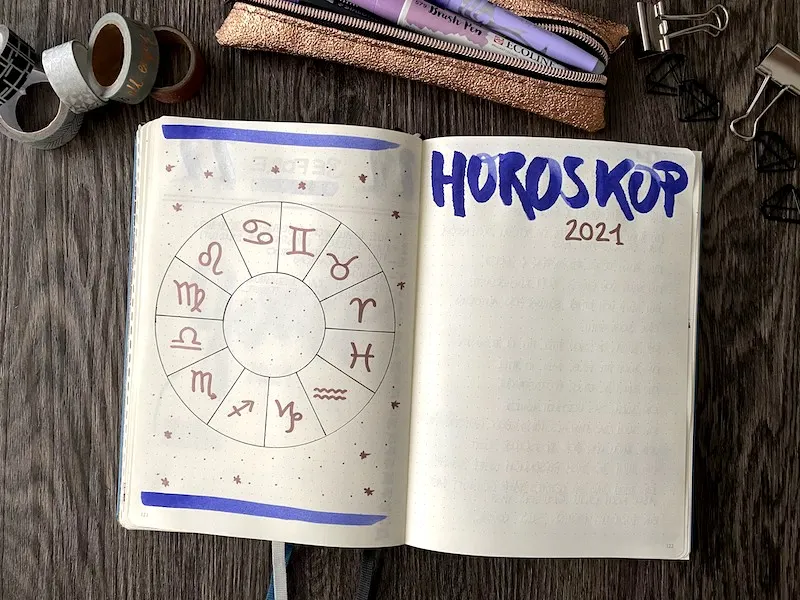 Brush Pen
ECOLINE
HOROSKOP
2021